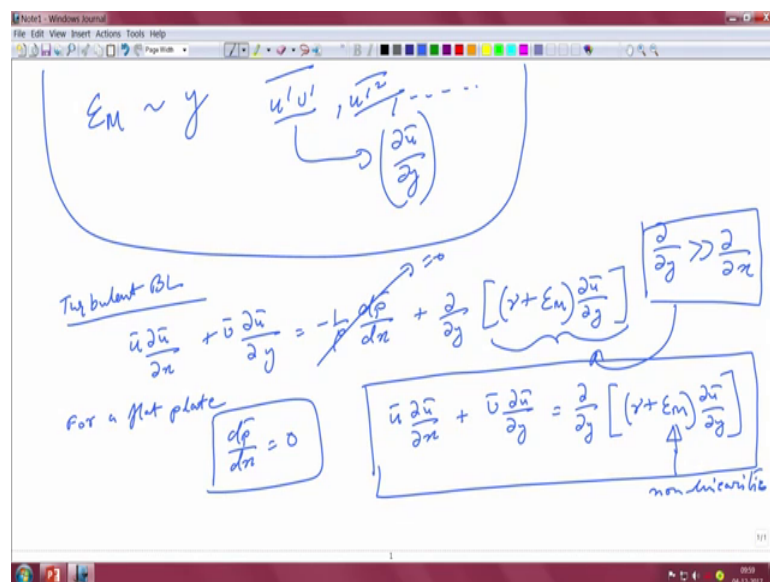 Note1 - Windows Journal
File Edit View Insert Actions Tools Help
Page Width
B I
ε_M ~ y   \overline{u'v'} , \overline{u'^2} , -----
(∂ū/∂y)
∂/∂y >> ∂/∂x
Turbulent BL
ū ∂ū/∂x + v̄ ∂ū/∂y = -1/ρ dp̄/dx + ∂/∂y [(ν + ε_M) ∂ū/∂y]
=0
For a flat plate
dp̄/dx = 0
ū ∂ū/∂x + v̄ ∂ū/∂y = ∂/∂y [(ν + ε_M) ∂ū/∂y]
1/1
1
09:59